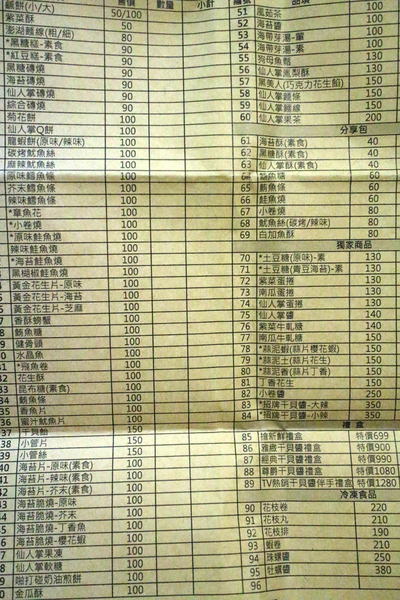 鹹餅(小/大) 50/100
紫菜酥 50
澎湖麵線(粗/細) 80
*黑糖糕-素食 90
*紅豆糕-素食 90
黑糖磚燒 90
海苔磚燒 90
仙人掌磚燒 90
綜合磚燒 90
菊花餅 100
仙人掌Q餅 100
龍蝦餅(原味/辣味) 100
碳烤魷魚絲 100
麻辣魷魚絲 100
原味鱈魚條 100
芥末鱈魚條 100
辣味鱈魚條 100
*章魚花 100
*小卷燒 100
*原味鮭魚燒 100
辣味鮭魚燒 100
*海苔鮭魚燒 100
黑椒鮭魚燒 100
黃金花生片-原味 100
黃金花生片-海苔 100
黃金花生片-芝麻 100
香酥螃蟹 100
鮪魚糖 100
健骨頭 100
水晶魚 100
*飛魚卷 100
花生酥 100
昆布糖(素食) 100
鮪魚條 100
香魚片 100
36 蜜汁魷魚片 100
37 干貝飴 150
38 小管片 150
39 小管絲 150
40 海苔片-原味(素食) 100
41 海苔片-辣味(素食) 100
42 海苔片-芥末(素食) 100
43 海苔脆燒-原味 100
海苔脆燒-芥末 100
海苔脆燒-丁香魚 100
海苔脆燒-櫻花蝦 100
仙人掌果凍 100
仙人掌軟糖 100
啪打碰奶油煎餅 100
金瓜酥 100
51 風茹茶 100
52 海苔醬 100
53 海帶芽湯-葷 100
54 海帶芽湯-素 100
55 狗母魚鬆 130
56 仙人掌鳳梨酥 130
57 黑美人(巧克力花生餡) 150
58 仙人掌麵條 150
59 仙人掌麵線 150
60 仙人掌果茶 200
分享包
61 海苔酥(素食) 40
62 黑糖酥(素食) 40
63 仙人掌酥(素食) 40
64 鮪魚糖 60
65 鮪魚條 60
66 鮭魚燒 60
67 小卷燒 80
68 魷魚絲(碳烤/辣味) 80
69 白加魚酥 80
獨家商品
70 *土豆糖(原味)-素 130
71 *土豆糖(青豆海苔)-素 130
72 紫菜蛋捲 130
73 南瓜蛋捲 130
74 仙人掌蛋捲 130
75 仙人掌醬 140
76 紫菜牛軋糖 140
77 南瓜牛軋糖 150
78 *蒜泥蝦(蒜片櫻花蝦) 150
79 *蒜泥土(蒜片花生) 150
80 *蒜泥香(蒜片丁香) 150
81 丁香花生 150
82 小卷醬 250
83 *招牌干貝醬-大辣 350
84 *招牌干貝醬-小辣 350
禮盒
85 搶新鮮禮盒 特價699
86 雅緻干貝醬禮盒 特價900
87 經典干貝醬禮盒 特價990
88 尊爵干貝醬禮盒 特價1080
89 TV熱銷干貝醬伴手禮盒 特價1280
冷凍食品
90 花枝卷 220
91 花枝丸 210
92 花枝排 190
93 蝦卷 210
94 珠螺醬 250
95 牡蠣醬 380
96